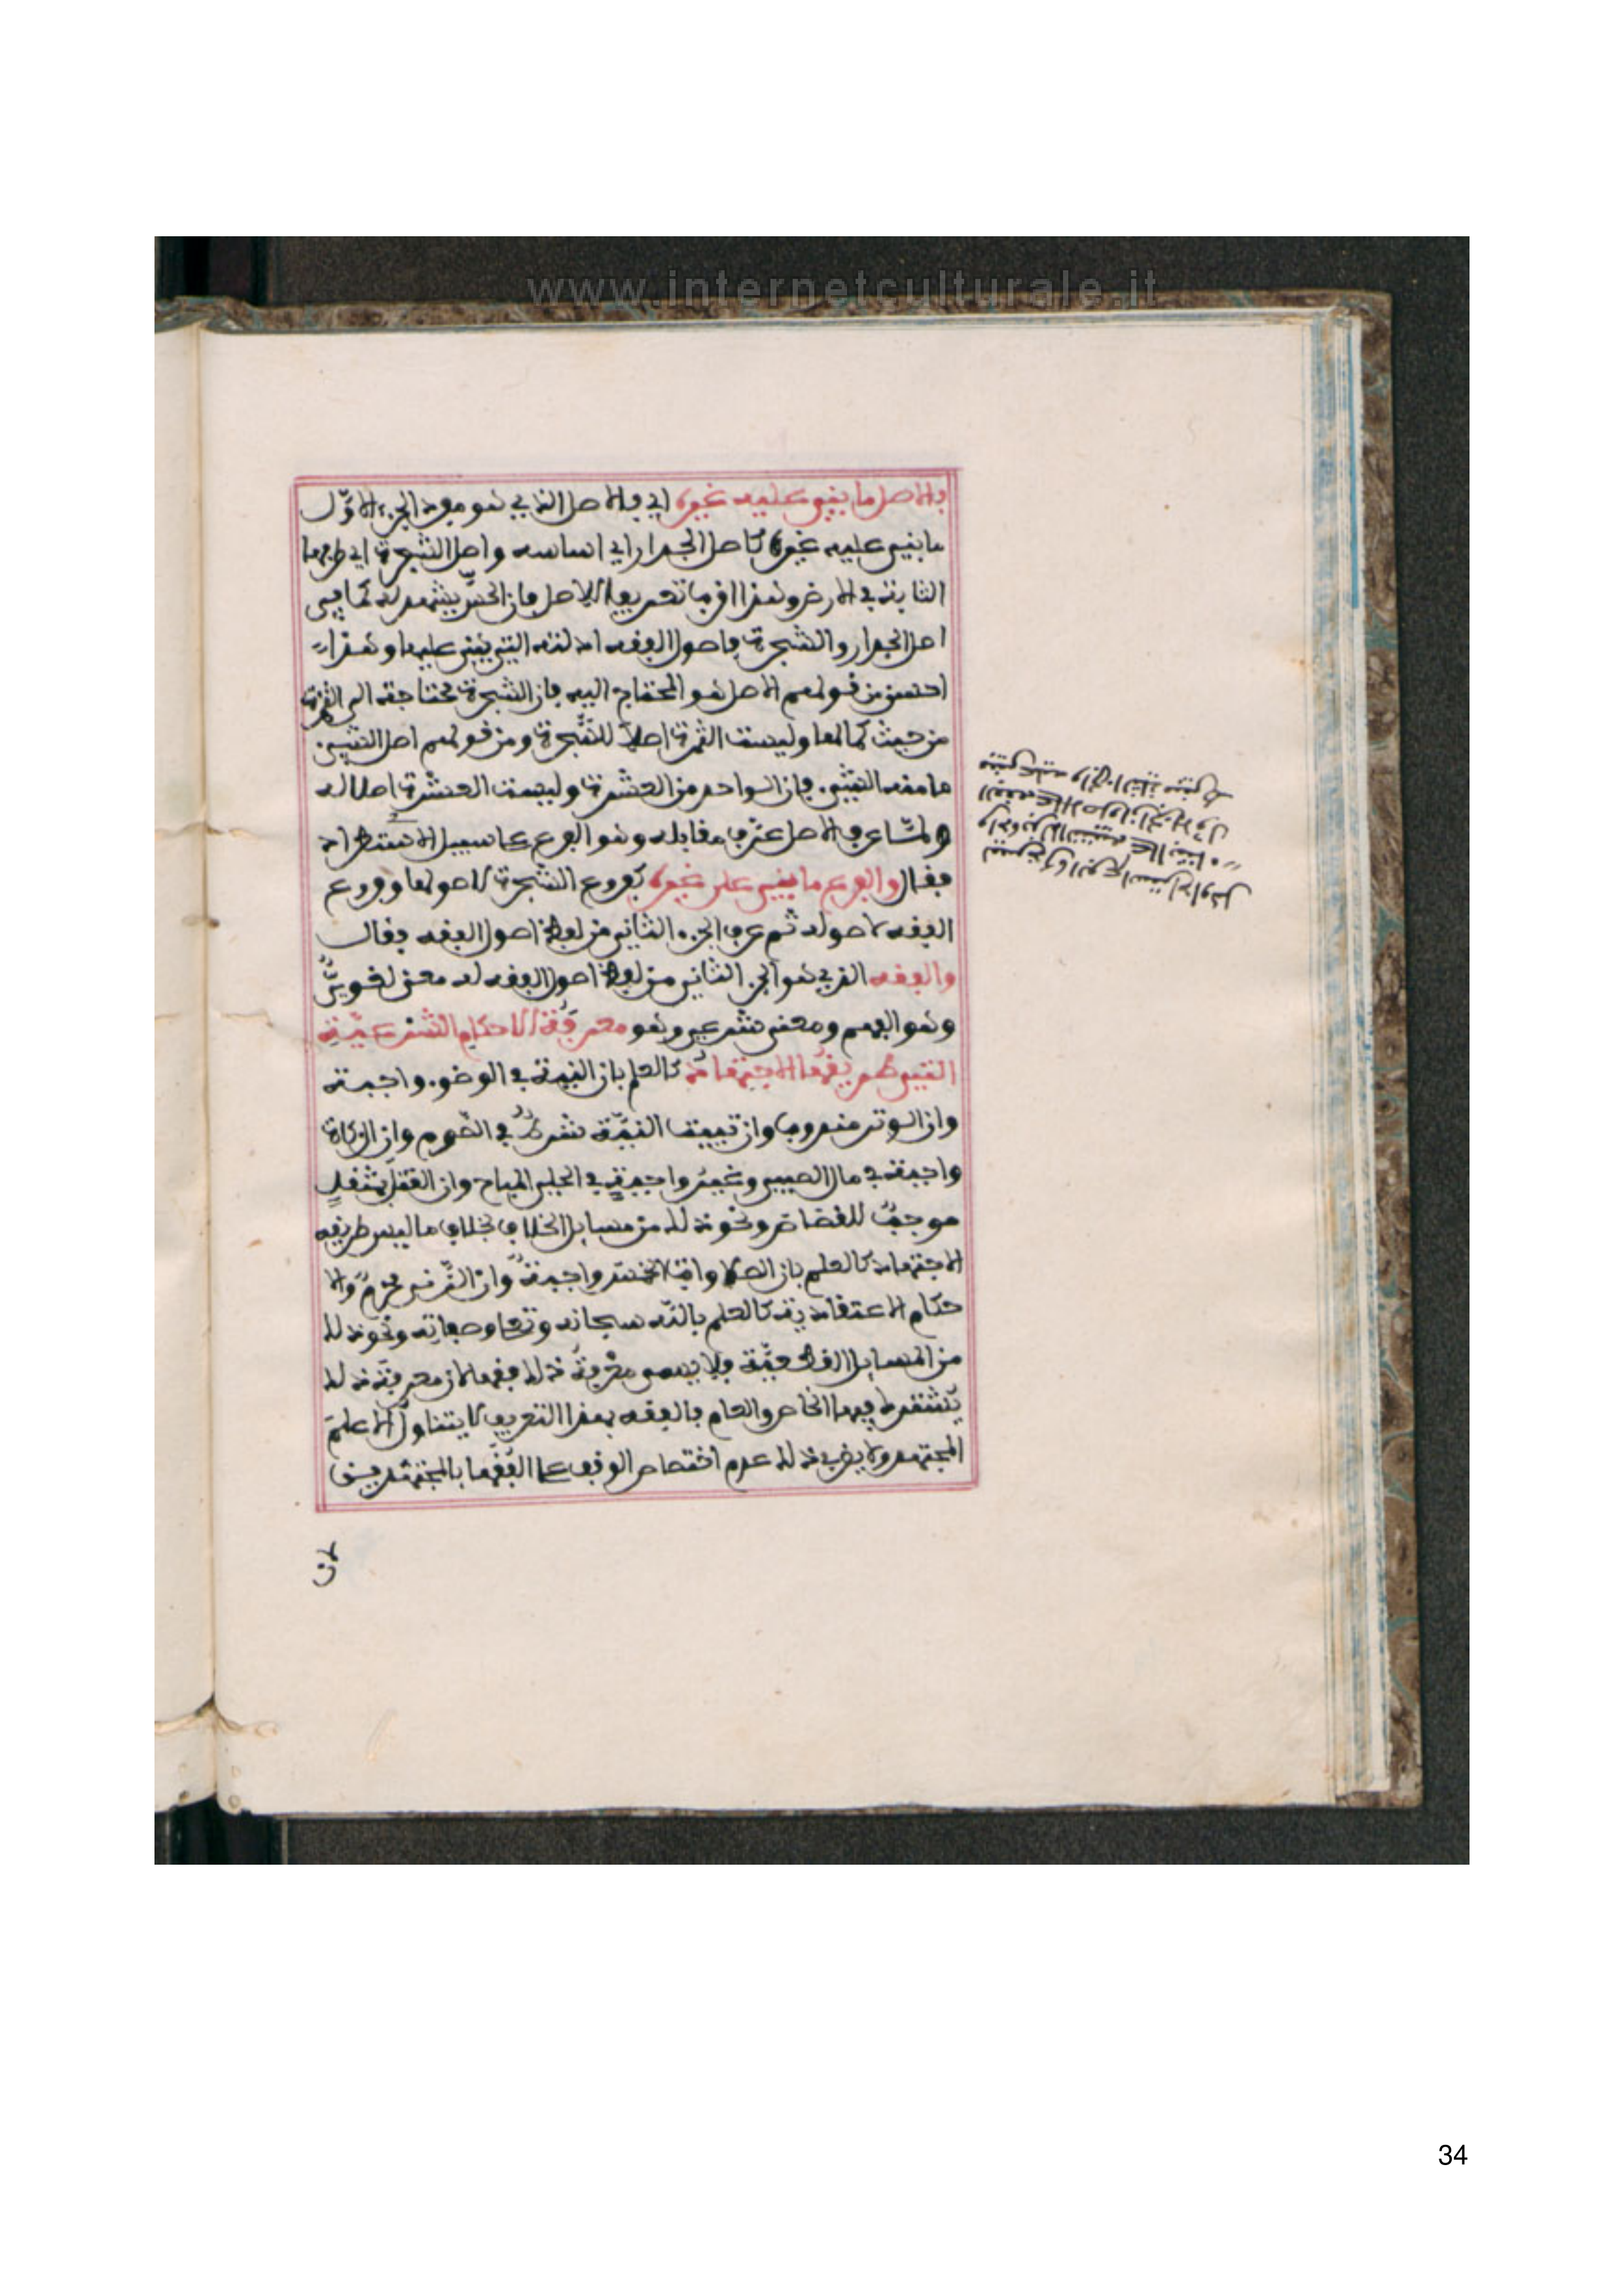 www.internetculturale.it
فالاصل ما يبنى عليه غيره اي فالاصل الذي هو مفرد الجزء الاول
ما بني عليه غيره كاصل الجدار اي اساسه واصل الشجرة اي طرفها
الثابت في الارض وهذا اقرب تعريف للاصل فان الحس يشهد له كما في
اصل الجدار والشجرة فاصول الفقه ادلته التي يبنى عليها وهذا
احسن من قولهم الاصل هو المحتاج اليه فان الشجرة محتاجة الى الثمرة
من حيث كمالها وليست الثمرة اصلا للشجرة ومن قولهم اصل الشيء
ما منه الشيء فان الواحد من العشرة وليست العشرة اصلا له
ولما عرف الاصل عرف مقابله وهو الفرع على سبيل الاستطراد
فقال والفرع ما يبنى على غيره كفروع الشجرة لاصولها وفروع
الفقه لاصوله ثم عرف الجزء الثاني من لفظ اصول الفقه فقال
والفقه الذي هو الجزء الثاني من لفظ اصول الفقه له معنى لغوي
وهو الفهم ومعنى شرعي وهو معرفة الاحكام الشرعية
التي طريقها الاجتهاد كالعلم بان النية في الوضوء واجبة
وان الوتر مندوب وان تبييت النية شرط في الصوم وان الزكاة
واجبة في مال الصبي وغير واجبة في الحلي المباح وان القتل بمثقل
موجب للقصاص ونحو ذلك من مسايل الخلاف بخلاف ما ليس طريقه
الاجتهاد كالعلم بان الصلوات الخمس واجبة وان الزنى محرم والا
حكام الاعتقادية كالعلم بالله سبحانه وتعالى وصفاته ونحو ذلك
من المسايل القطعية فلا يسمى معرفة ذلك فقها لان معرفة ذلك
يشترط فيها الخاص والعام فالفقه بهذا التعريف لا يتناول الا علم
المجتهد ولا يضر في ذلك عدم اختصاص الوقف على الفقهاء بالمجتهدين
لان
34